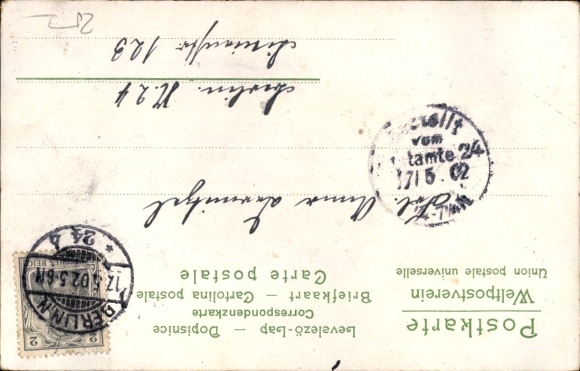 Postkarte
Weltpostverein
Union postale universelle
Levelező-Lap — Dopisnice
Correspondenzkarte
Briefkaart — Cartolina postale
Carte postale
Frl. Anna
Berlin. N. 24
123
Bestellt
vom
Postamte 24
17/5. 02
BERLIN.N.
17.5.02.5-6N
* 24 b
2
2
25